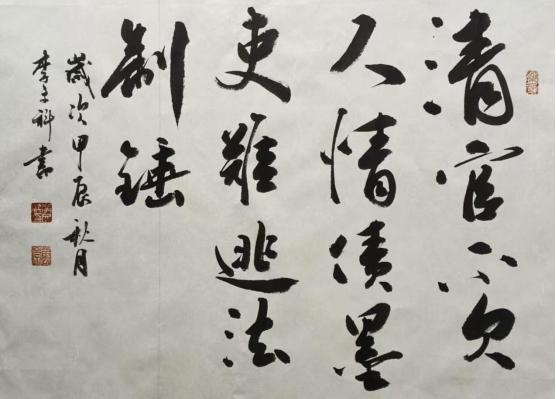 清官不欠
人情债墨
吏难逃法
制锤
岁次甲辰秋月
李文科书